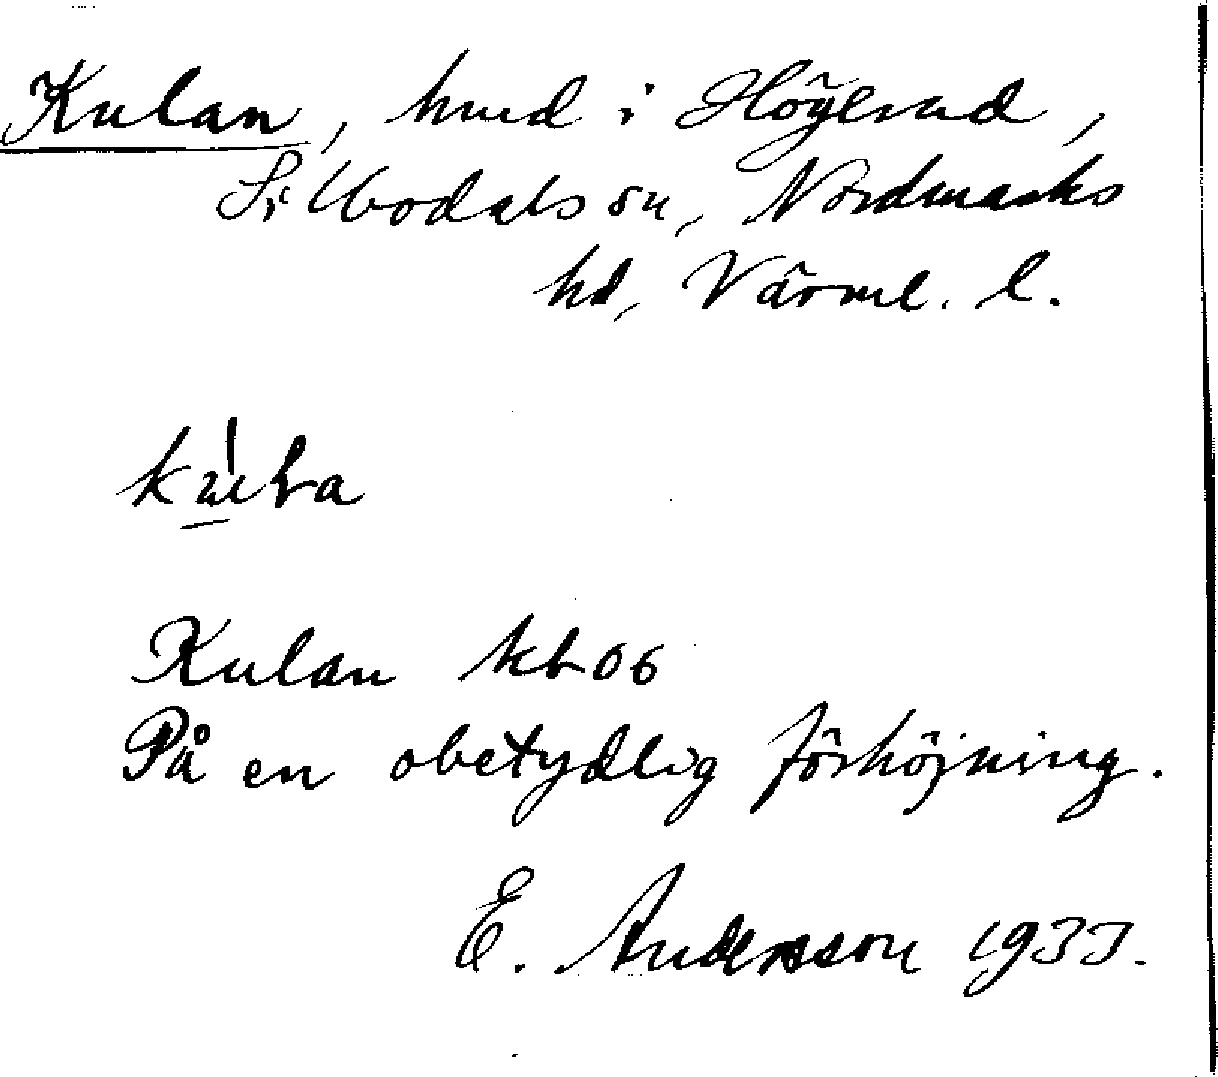 Kulan, hmd i Högerud,
Silbodals sn, Nordmarks
hd, Värml. l.
Kulan kb 06
På en obetydlig förhöjning.
E. Andersson 1933.